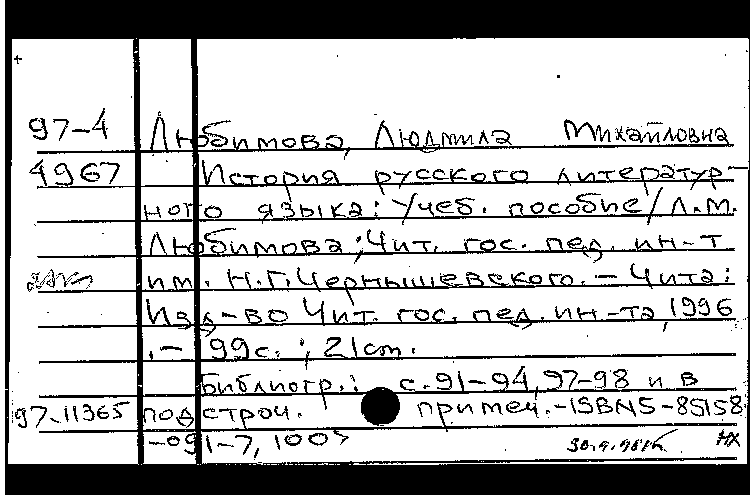 97-4 Любимова, Людмила Михайловна
4967 История русского литератур-
ного языка: Учеб. пособие/Л.М.
Любимова; Чит. гос. пед. ин-т
им. Н.Г.Чернышевского. — Чита:
Изд-во Чит. гос. пед. ин-та, 1996
.— 99с. ; 21cm.
Библиогр.: с.91-94, 97-98 и в
97-11365 подстроч. примеч.-ISBN5-85158
-091-7, 100>
НХ